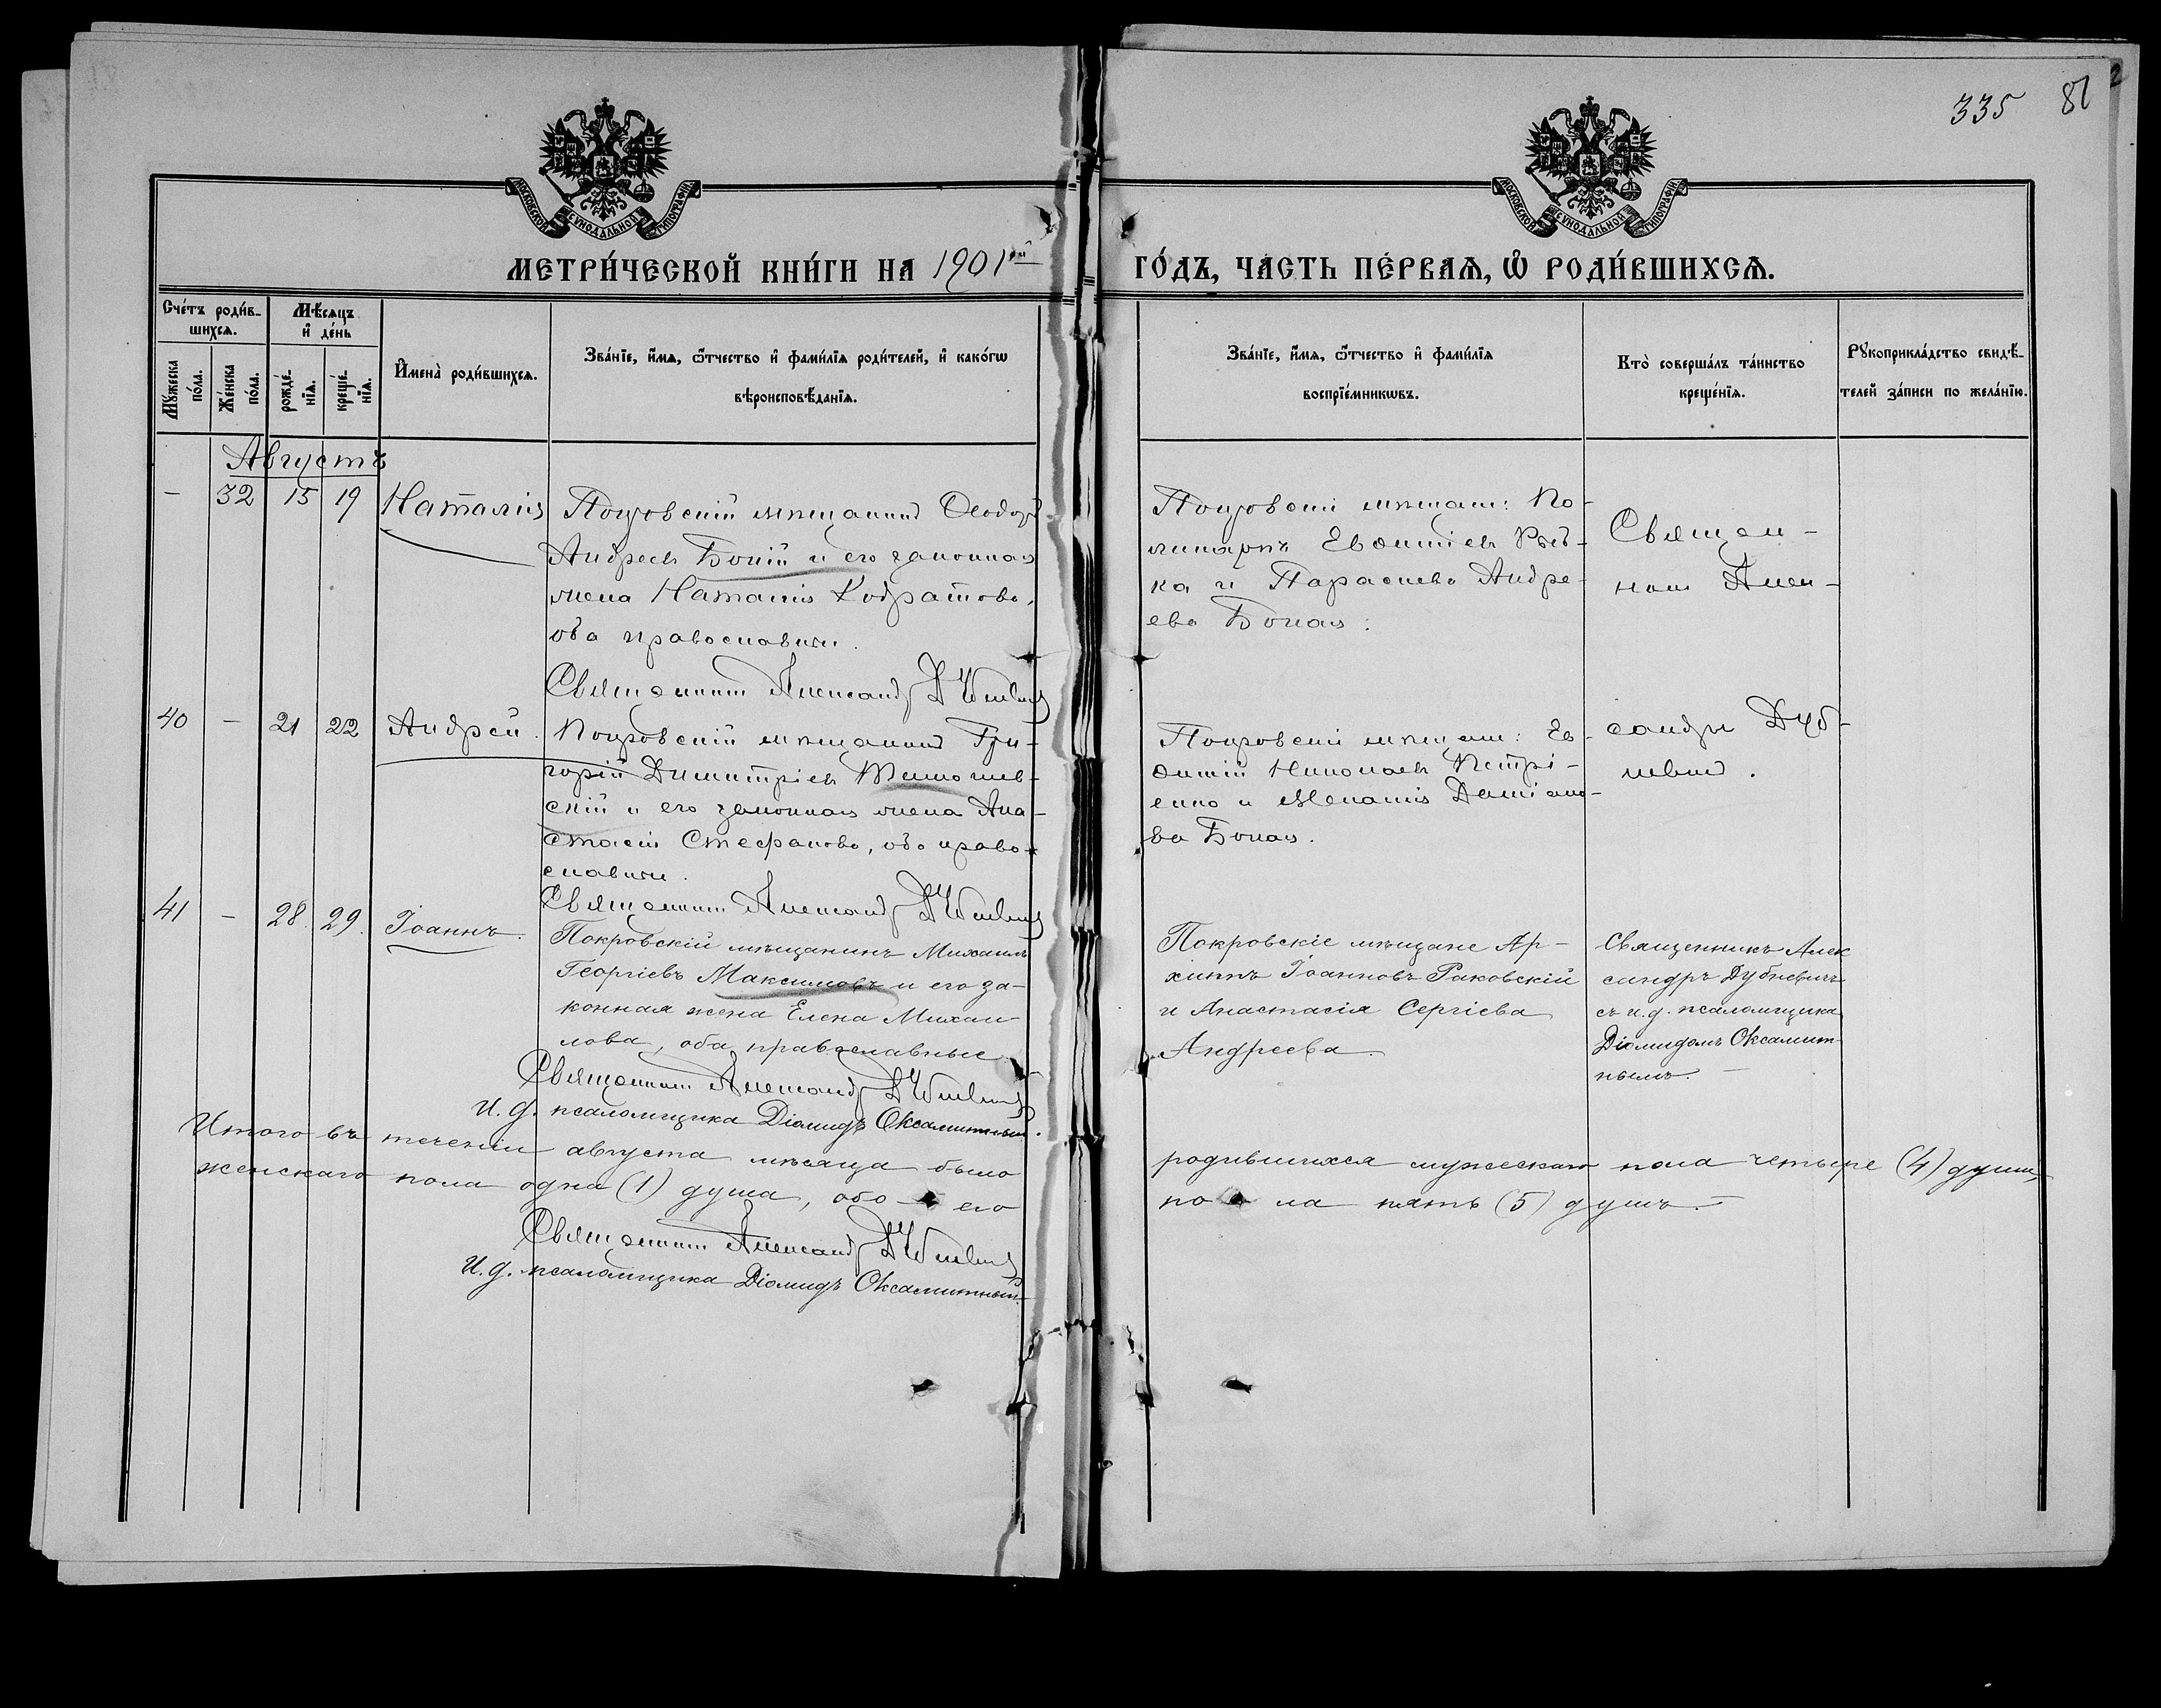 335 81
МОСКОВСКОЙ СѴНОДАЛЬНОЙ ТИПОГРАФІИ
МОСКОВСКОЙ СѴНОДАЛЬНОЙ ТИПОГРАФІИ
МЕТРИ́ЧЕСКОЙ КНИ́ГИ НА 1901ый ГО́ДЪ, ЧА́СТЬ ПЕ́РВАѦ, Ѡ҆ РОДИ́ВШИХСѦ.
Сче́тъ роди́в-
шихсѧ.
Мѣ́сѧцъ
и҆ де́нь
Мꙋ́жеска
по́ла.
Же́нска
по́ла.
рожде́-
нїѧ.
креще́-
нїѧ.
И҆мена̀ роди́вшихсѧ.
Зва́нїе, и҆́мѧ, ѻ҆́тчество и҆ фами́лїѧ роди́телей, и҆ како́гѡ
вѣроисповѣ́данїѧ.
Зва́нїе, и҆́мѧ, ѻ҆́тчество и҆ фами́лїѧ
воспрїе́мникѡвъ.
Кто̀ соверша́лъ та́инство
креще́нїѧ.
Рꙋкоприкла́дство свидѣ́-
телей за́писи по жела́нїю.
Августъ
— 32 15 19 Наталія
Покровскій мѣщанинъ Ѳеодоръ
Андреевъ Бокій и его законная
жена Наталія Кодратова,
оба православные.
Священникъ Александръ Дубневичъ
Покровскіе мѣщане: По-
ликарпъ Евѳиміевъ
ка и Параскева Андре-
ева Бокая.
Священ-
никъ Алек-
40 — 21 22 Андрей.
Покровскій мѣщанинъ Гри-
горій Димитріевъ
скій и его законная жена Ана-
стасія Стефанова, оба право-
славные.
Священникъ Александръ Дубневичъ
Покровскіе мѣщане: Ев-
ѳимій Николаевъ Петрі-
енко и Меланія Даміано-
ва Бокая.
сандръ Дуб-
невичъ.
41 — 28. 29. Іоаннъ.
Покровскій мѣщанинъ Михаилъ
Георгіевъ Максимовъ и его за-
конная жена Елена Михаи-
лова, оба православные.
Священникъ Александръ Дубневичъ
И. д. псаломщика Діомидъ Оксамитный.
Покровскіе мѣщане Ар-
хиппъ Іоанновъ Раковскій
и Анастасія Сергіева
Андреева.
Священникъ Алек
сандръ Дубневичъ
съ и. д. псаломщика
Діомидомъ Оксамит-
нымъ. —
Итого въ теченіи августа мѣсяца было родившихся мужескаго пола четыре (4) души,
женскаго пола одна (1) душа, обо-его по-ла пять (5) душъ. —
Священникъ Александръ Дубневичъ
И. д. псаломщика Діомидъ Оксамитный.